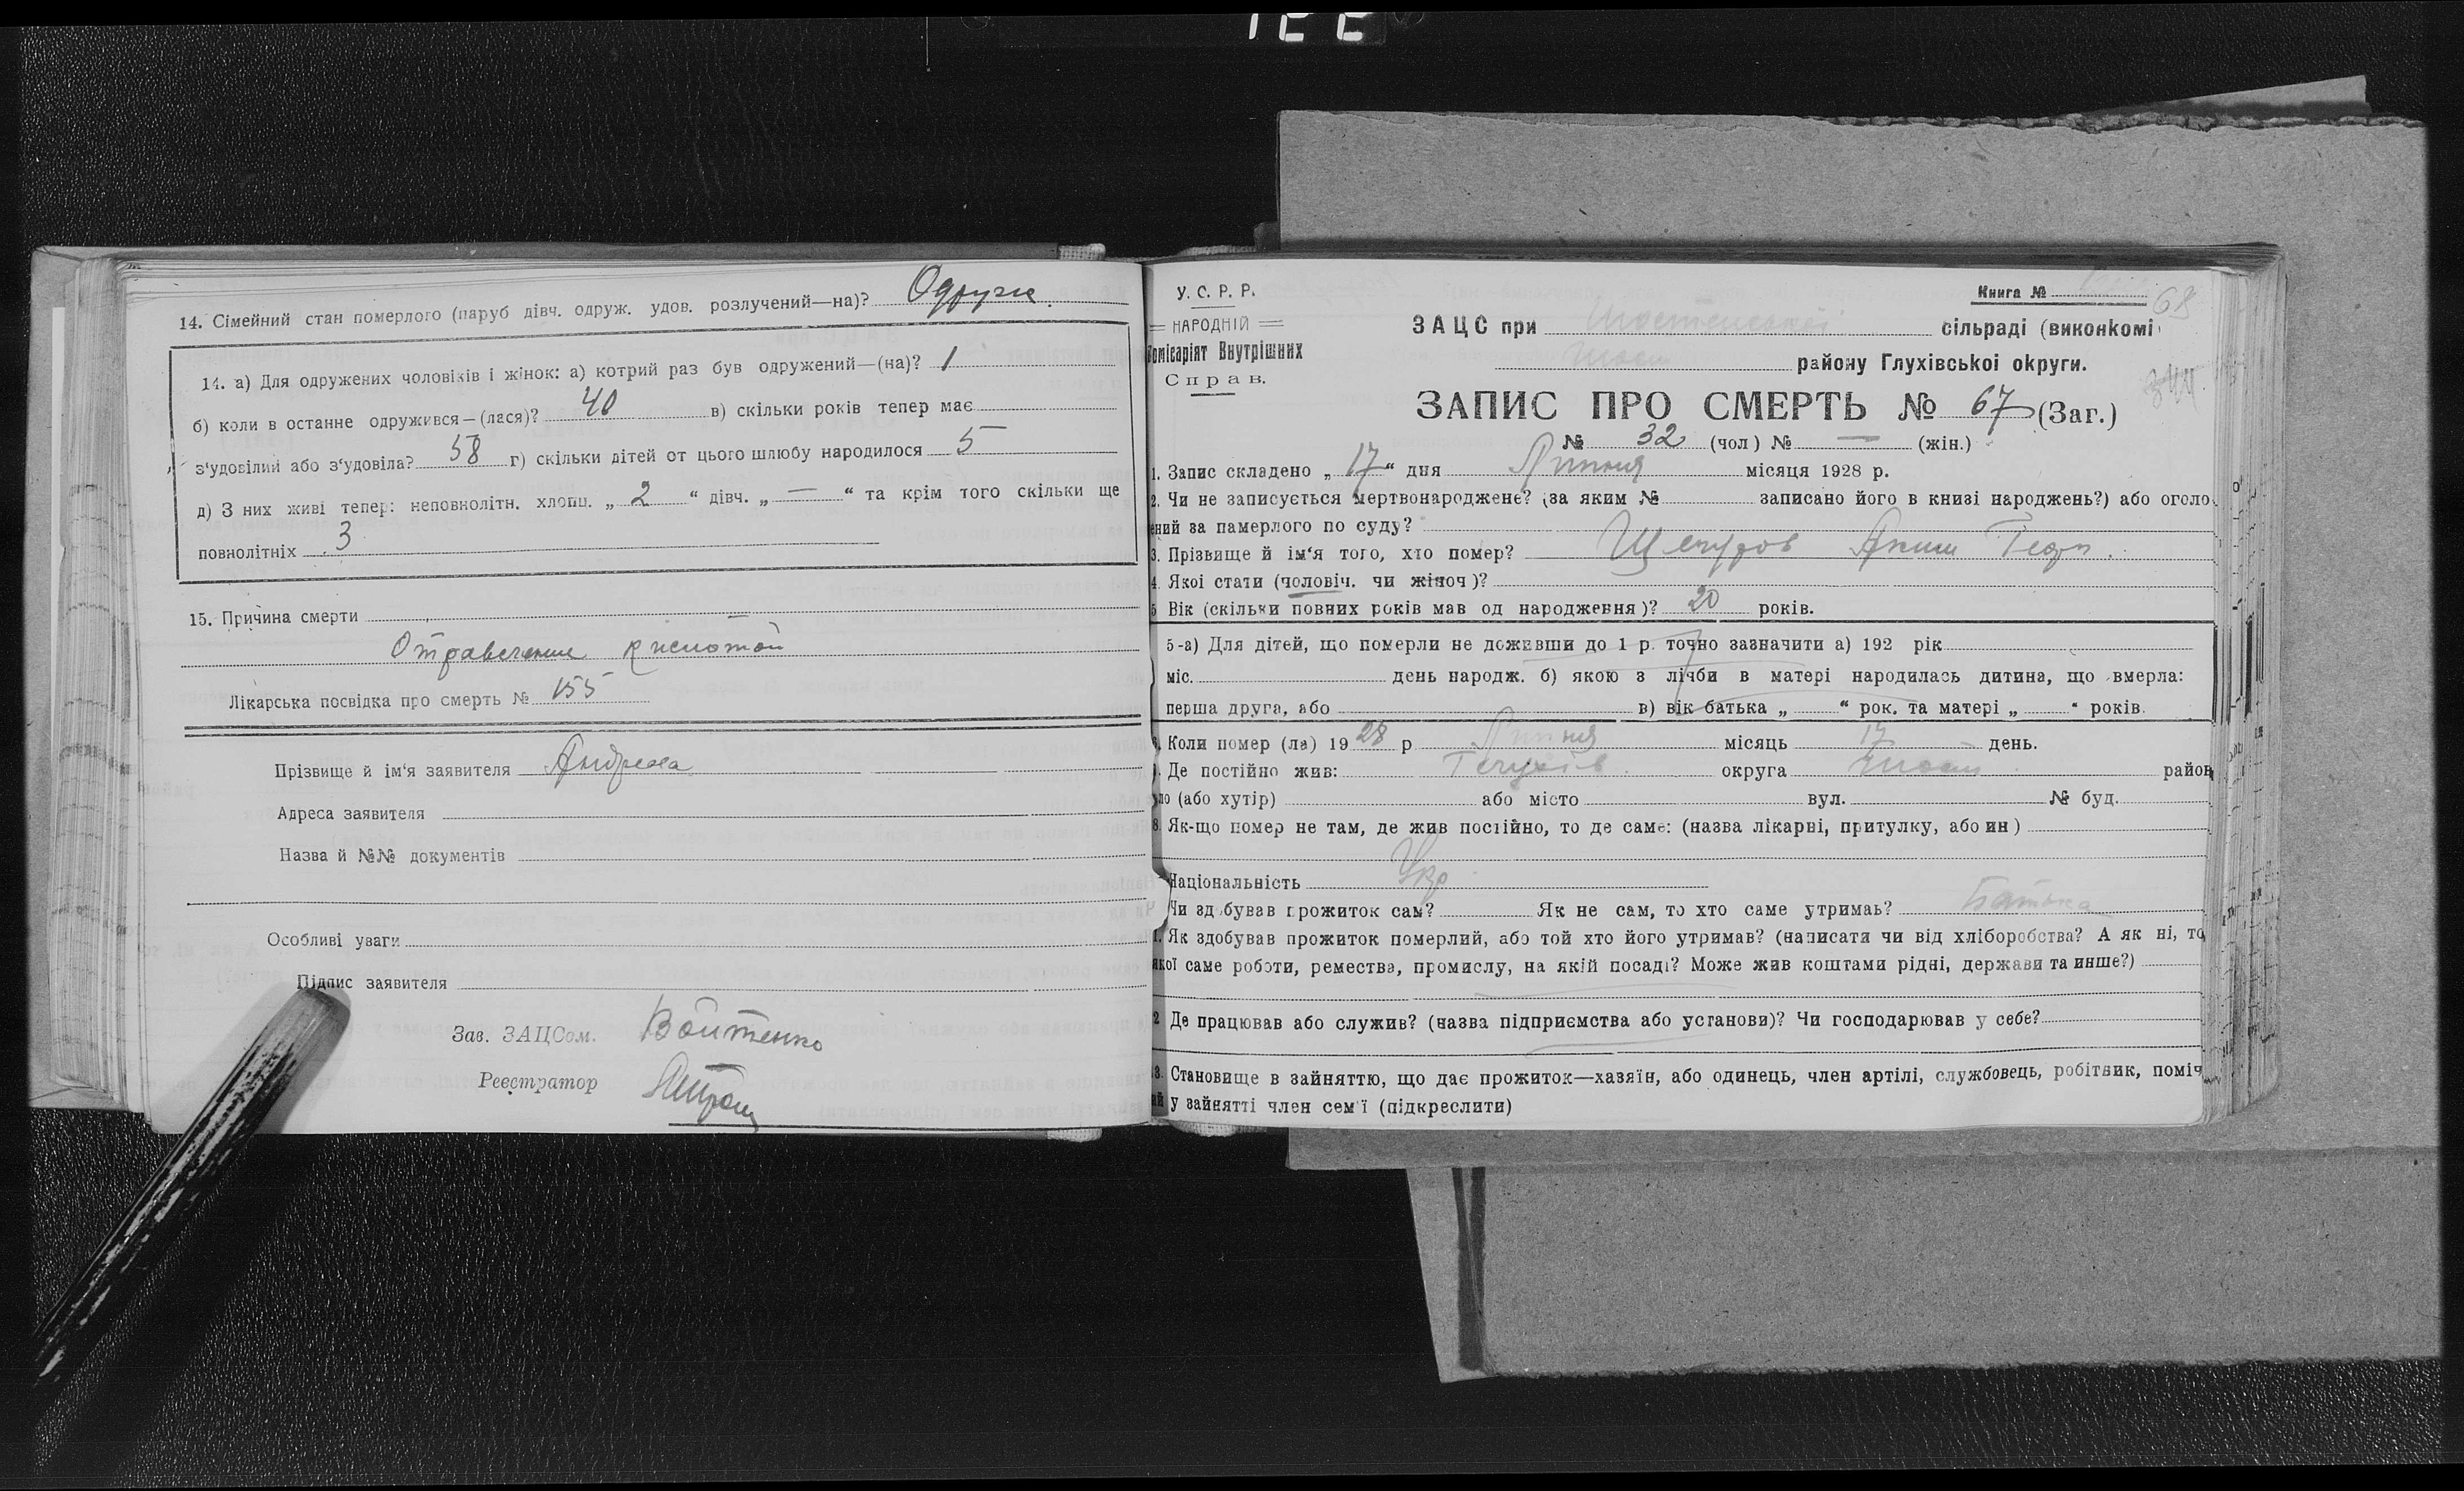 14. Сімейний стан померлого (паруб дівч. одруж. удов. розлучений—на)? Одруже.
14. а) Для одружених чоловіків і жінок: а) котрий раз був одружений—(на)? 1
б) коли в останне одружився—(лася)? 40 в) скільки років тепер має
з'удовілий або з'удовіла? 58 г) скільки дітей от цього шлюбу народилося 5
д) З них живі тепер: неповнолітн. хлопц. „ 2 “ дівч. „ — “ та крім того скільки ще
повнолітніх 3
15. Причина смерти
Отравление кислотой
Лікарська посвідка про смерть № 155
Прізвище й ім'я заявителя
Адреса заявителя
Назва й №№ документів
Особливі уваги
Підпис заявителя
Зав. ЗАЦСом. Войтенко
Реєстратор
У. С. Р. Р.
НАРОДНІЙ
Комісаріят Внутрішних
Справ.
Книга №
68
ЗАЦС при Шостенської сільраді (виконкомі
Шост району Глухівськоі округи.
344
ЗАПИС ПРО СМЕРТЬ № 67 (Заг.)
№ 32 (чол) № — (жін.)
1. Запис складено „ 17 “ дня Липня місяця 1928 р.
2. Чи не записується мертвонароджене? (за яким № записано його в книзі народжень?) або оголо
ений за памерлого по суду?
3. Прізвище й ім'я того, хто помер? Аким
4. Якоі стати (чоловіч. чи жіноч)?
5 Вік (скільки повних років мав од народження)? 20 років.
5-а) Для дітей, що померли не доживши до 1 р. точно зазначити а) 192 рік
міс. день народж. б) якою з лічби в матері народилась дитина, що вмерла:
перша друга, або в) вік батька „ “ рок. та матері „ “ років.
Коли помер (ла) 1928 р Липня місяць 17 день.
Де постійно жив: Глухів. округа Шост. район
ло (або хутір) або місто вул. № буд.
8. Як-що помер не там, де жив постійно, то де саме: (назва лікарні, притулку, або ин)
Національність Укр
Чи здобував прожиток сам? Як не сам, то хто саме утримав? Батька
1. Як здобував прожиток померлий, або той хто його утримав? (написати чи від хліборобства? А як ні, то
якої саме роботи, ремества, промислу, на якій посаді? Може жив коштами рідні, держави та инше?)
2 Де працював або служив? (назва підприємства або установи)? Чи господарював у себе?
3. Становище в зайняттю, що дає прожиток—хазяїн, або одинець, член артілі, службовець, робітник, поміч
ай у зайнятті член сем'ї (підкреслити)